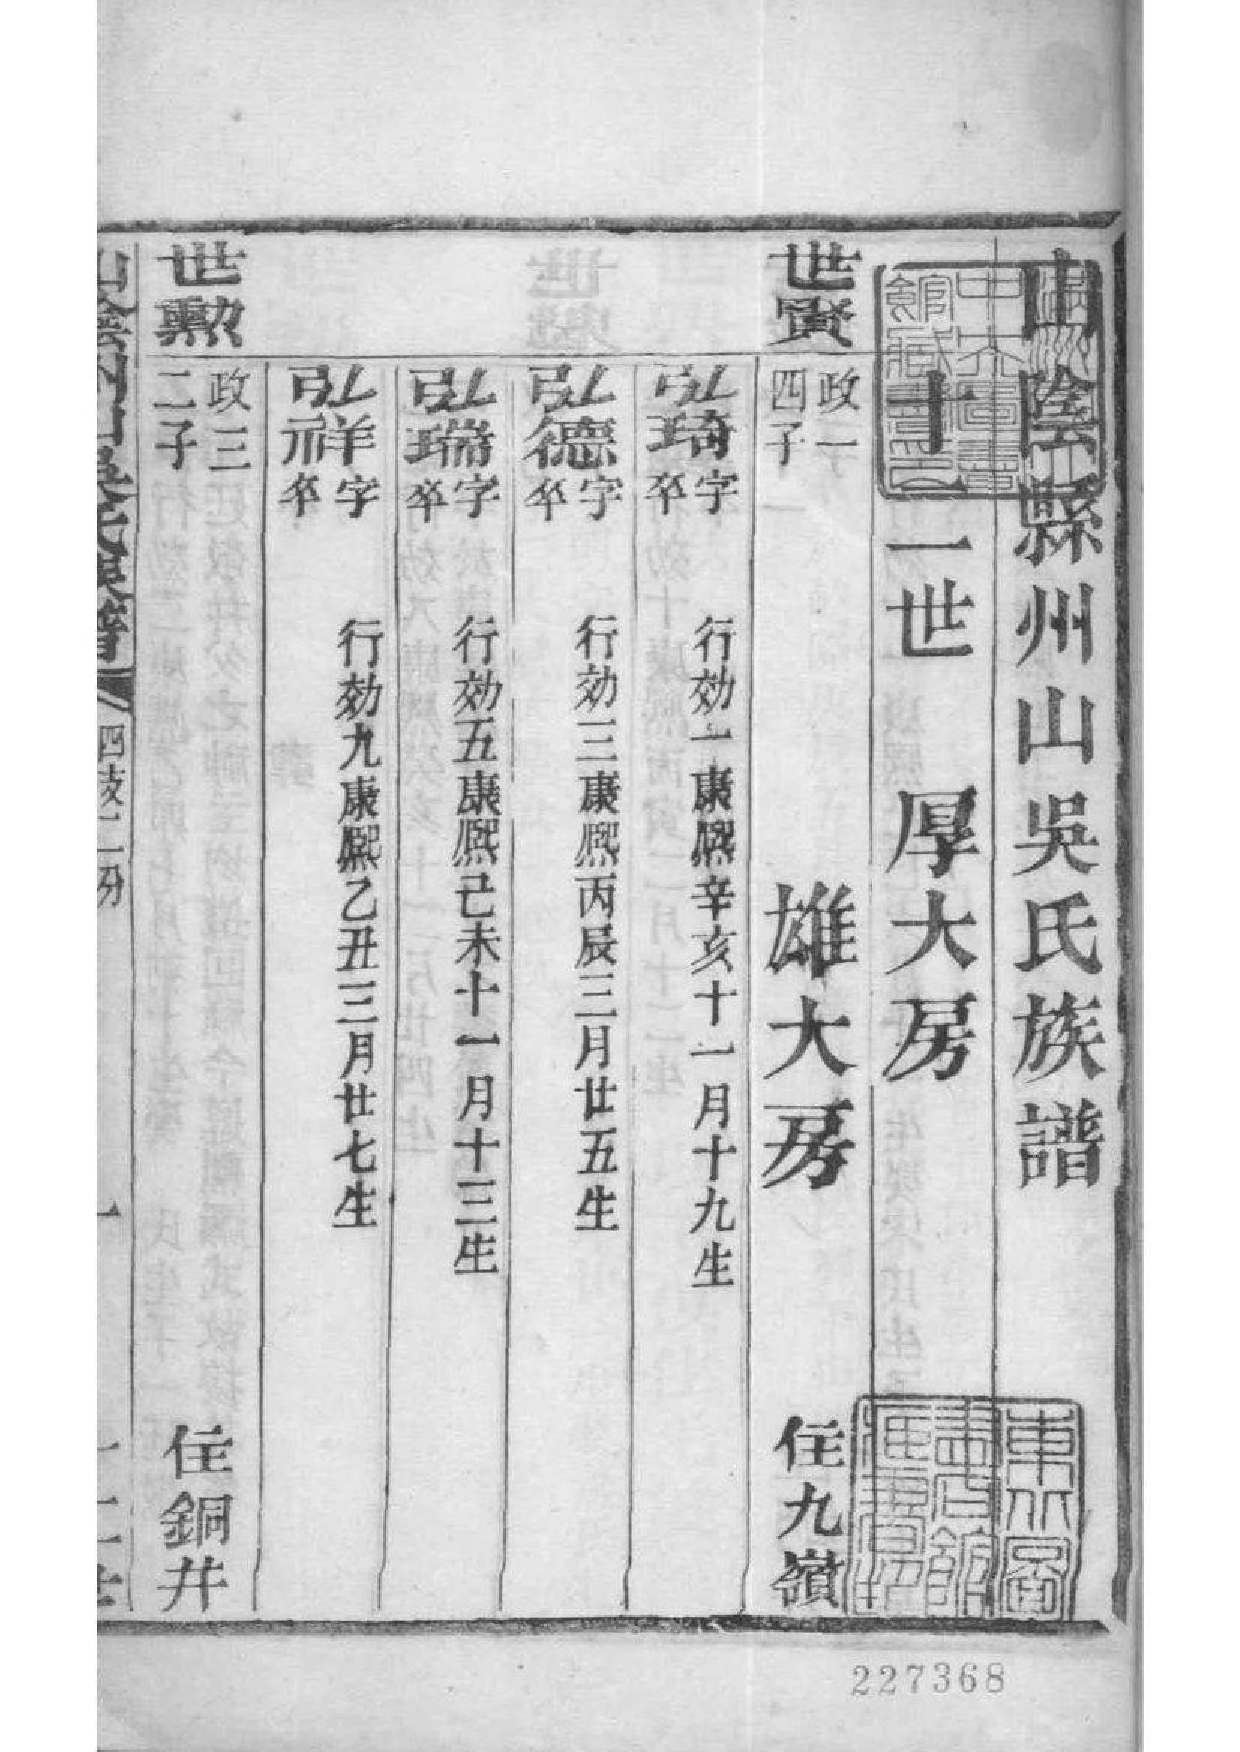 山陰縣州山吳氏族譜
十二世 厚大房
世賢 政一四子 雄大房 住九嶺
弘琦 字 卒 行効一康熈辛亥十一月十九生
弘德 字 卒 行効三康熈丙辰三月廿五生
弘瑞 字 卒 行効五康熈己未十一月十三生
弘祥 字 卒 行効九康熈乙丑三月廿七生
世勲 政三二子 住銅井
山陰州山吳氏族譜 四支二分 一 十二世
227368